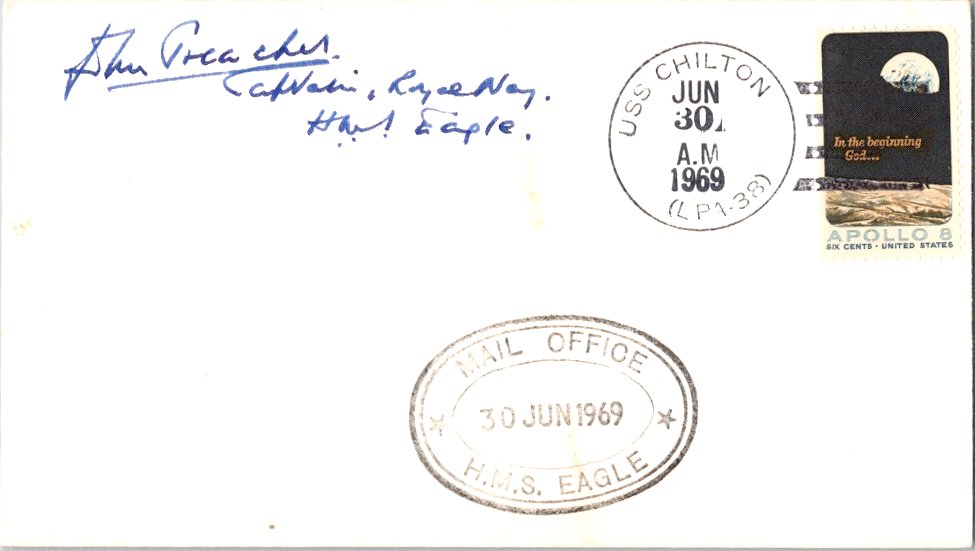 John Treacher.
Captain, Royal Navy.
H.M.S Eagle.
USS CHILTON
JUN
30
A.M
1969
(LPA-38)
In the beginning
God...
APOLLO 8
SIX CENTS · UNITED STATES
MAIL OFFICE
30 JUN 1969
H.M.S. EAGLE